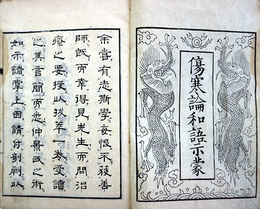 傷寒論和語示蒙
余嘗有志斯學每恨不獲善
師既而幸得見先生而問治
療之要授以拔萃一卷受讀
之其言簡而悉仲景氏之術
如示諸掌上因請分剞劂以